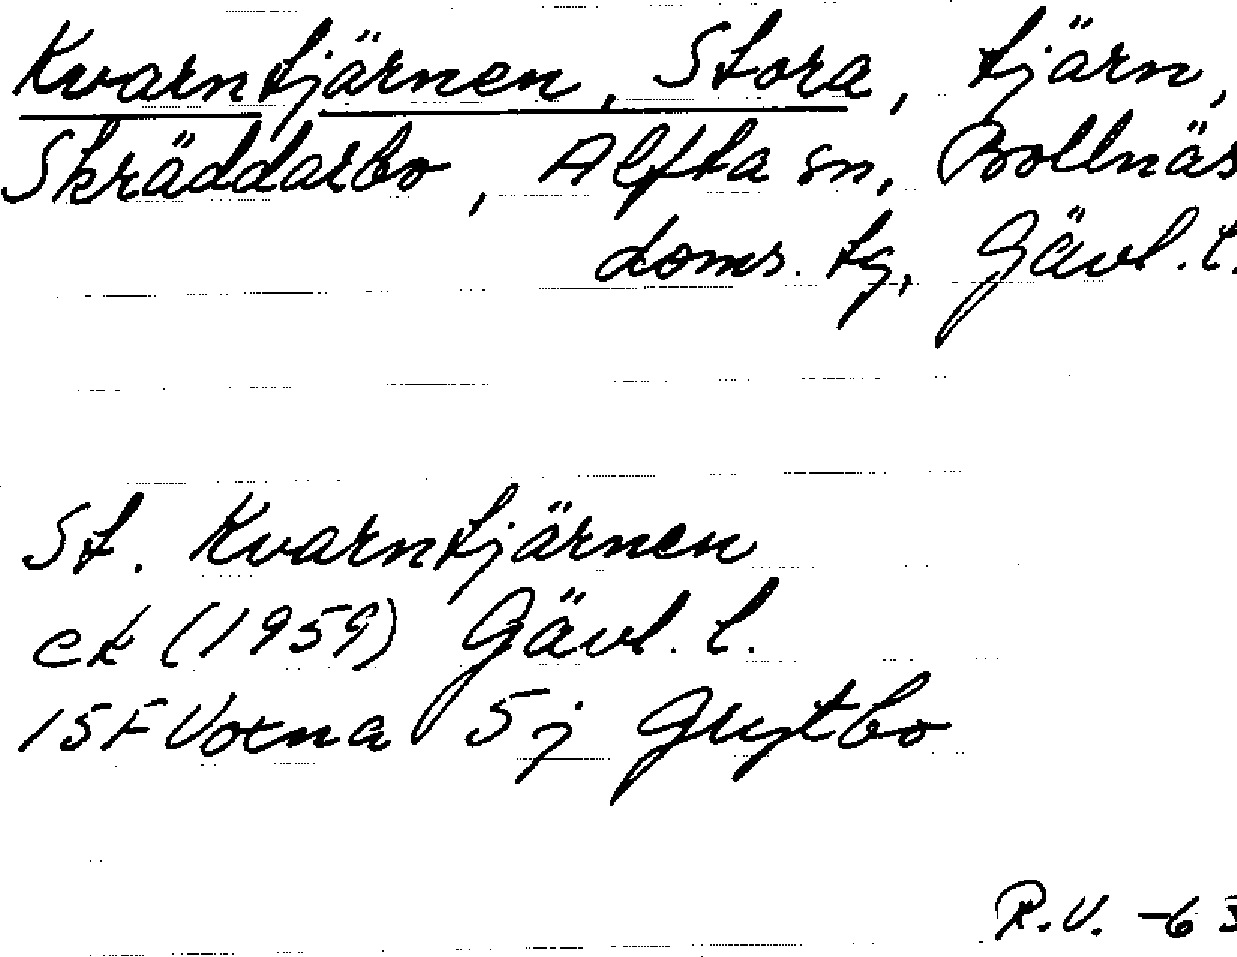 Kvarntjärnen, Stora, tjärn,
Skräddarbo, Alfta sn, Bollnäs
doms. tg, Gävl. l.
St. Kvarntjärnen
ek (1959) Gävl. l.
15F Voxna 5j Grytbo
R.V. -63